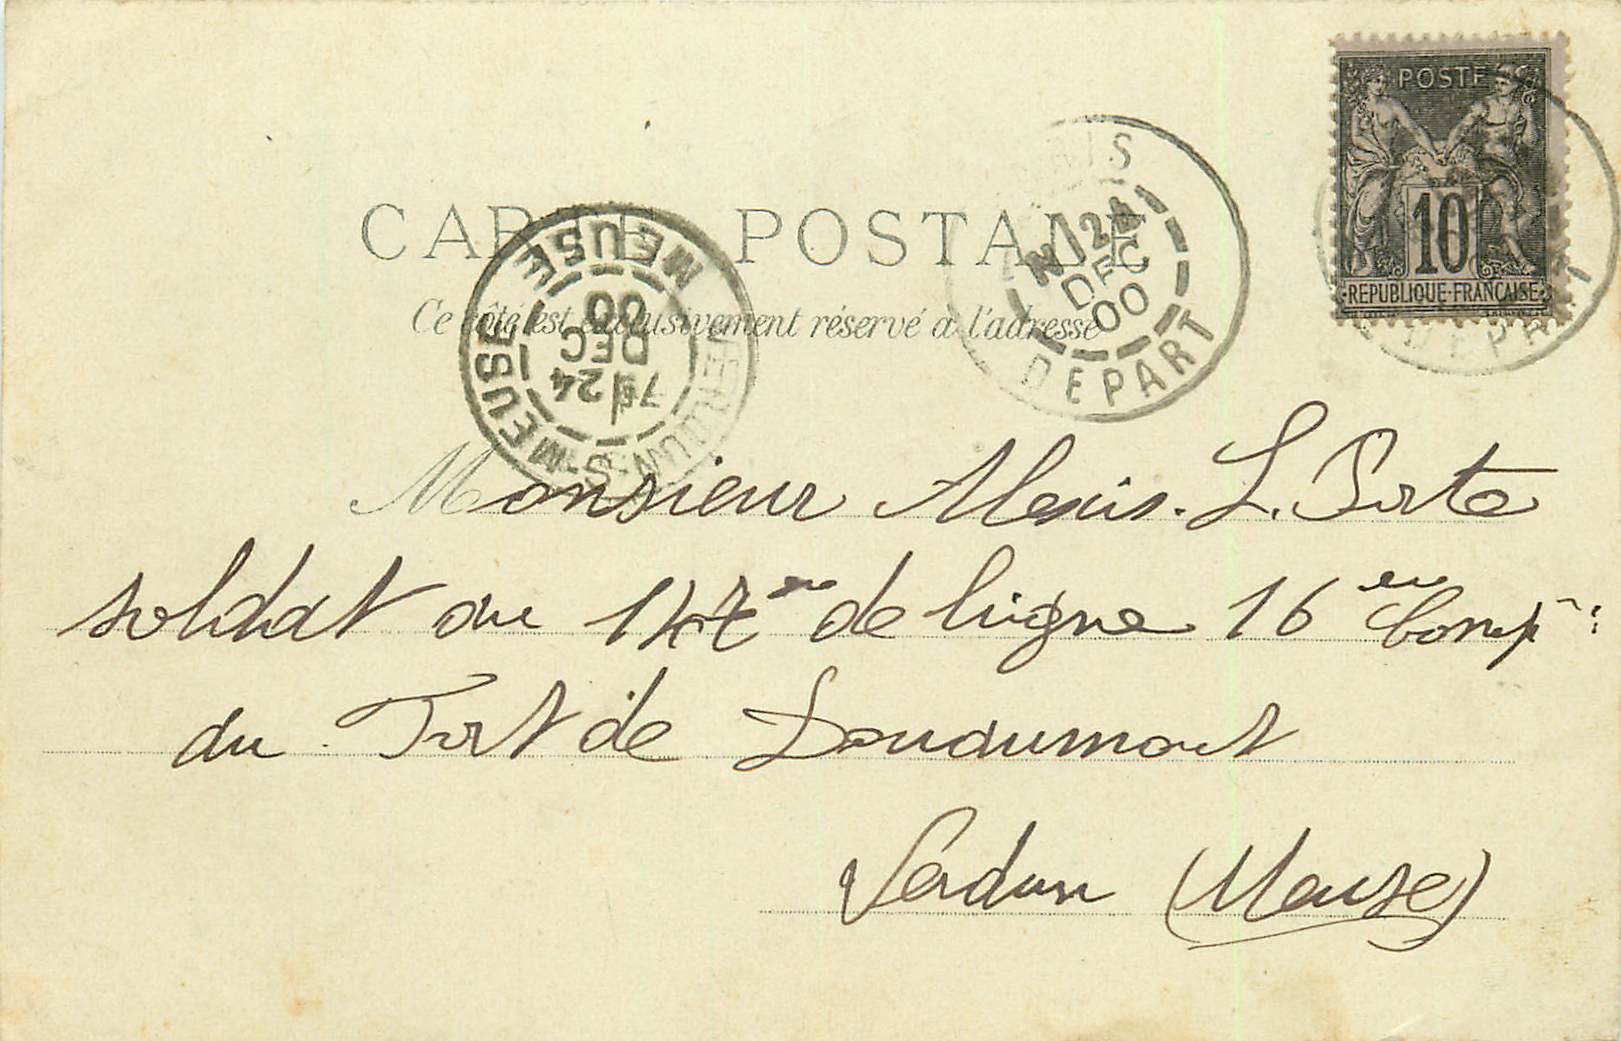 POSTE
10
REPUBLIQUE FRANÇAISE
CARTE POSTALE
Ce côté est exclusivement réservé à l'adresse
DEC
00
DEPART
DEPART
VERDUN-S-MEUSE
MEUSE
24
DEC
00
Monsieur Alexis. L. Porte
soldat au 147me de ligne 16em Comp
du Fort de Douaumont
Verdun (Meuse)